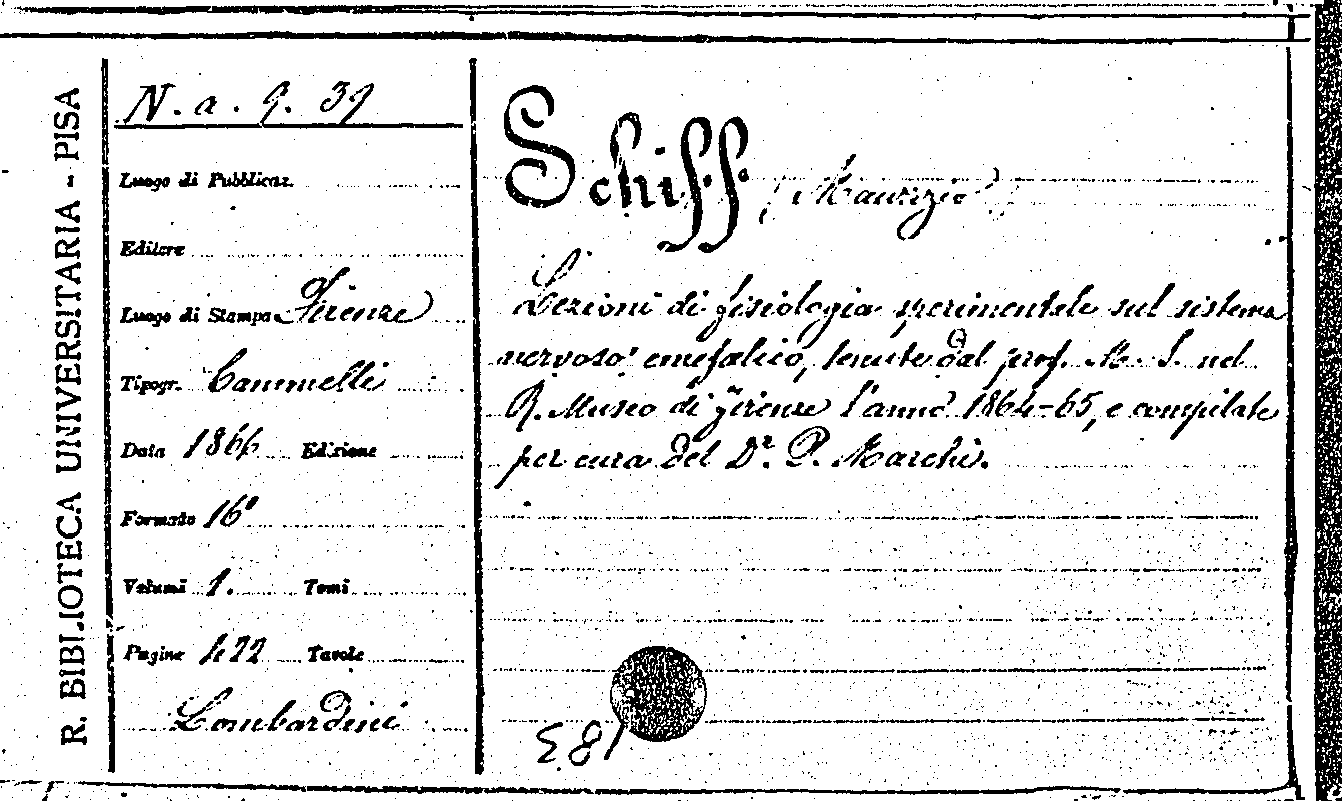 R. BIBLIOTECA UNIVERSITARIA - PISA
N. a. 9. 39
Luogo di Pubblicaz.
Editore
Luogo di Stampa Firenze
Tipogr. Cammelli
Data 1866 Edizione
Formato 16°
Volumi 1. Tomi
Pagine 422 Tavole
Lombardini
Schiff (Maurizio)
Lezioni di fisiologia sperimentale sul sistema
nervoso encefalico, tenute dal prof. M. S. nel
R. Museo di Firenze l'anno 1864-65, e compilate
per cura del Dr. P. Marchi.